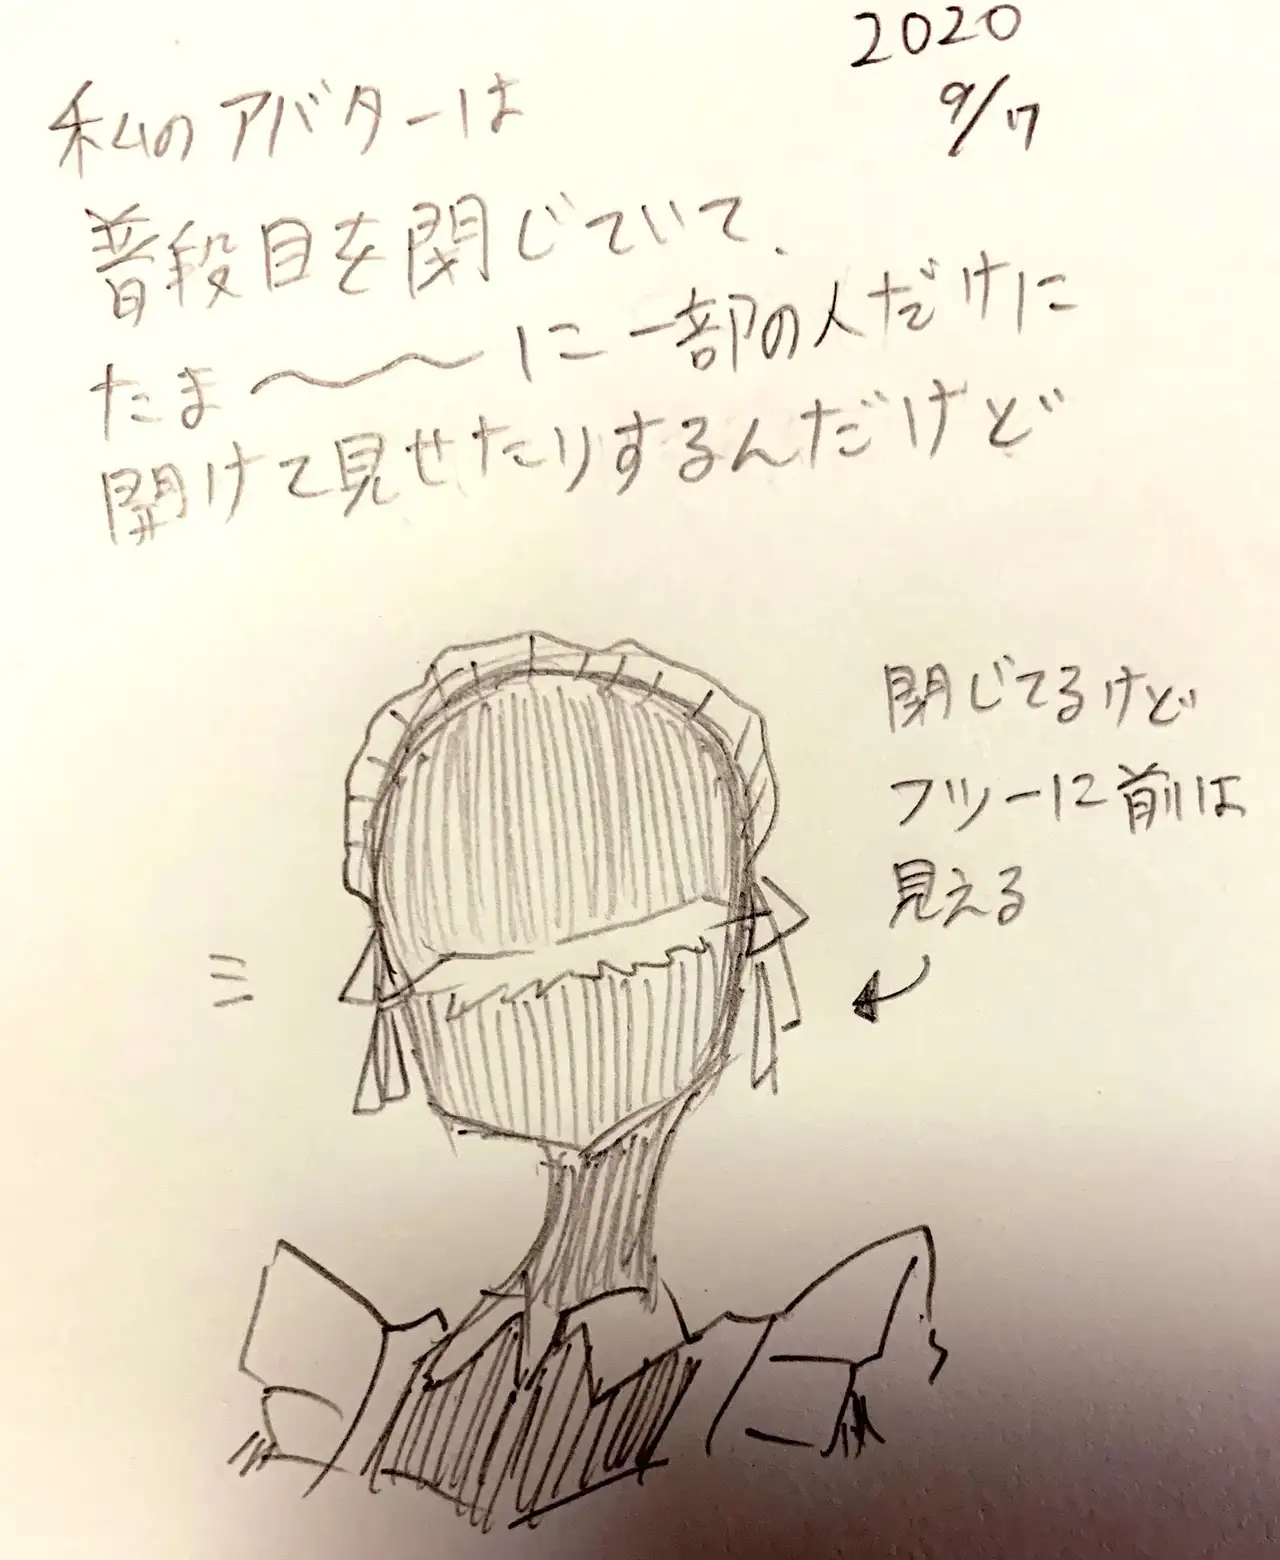 2020
9/17
私のアバターは
普段目を閉じていて、
たま〜〜に一部の人だけに
開けて見せたりするんだけど
閉じてるけど
フツーに前は
見える